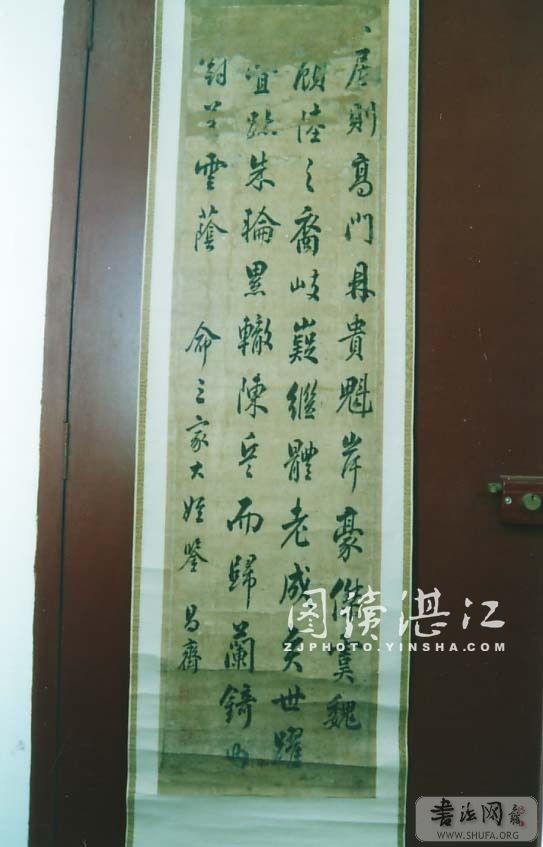 居則高門鼎貴魁岸豪傑虞魏
顧陸之裔岐嶷繼體老成奕世躍
跡朱輪累轍陳兵而歸蘭錡內
雲蔭 命三家大姪鑒 昌齊
图读湛江
ZJPHOTO.YINSHA.COM
书法网
WWW.SHUFA.ORG